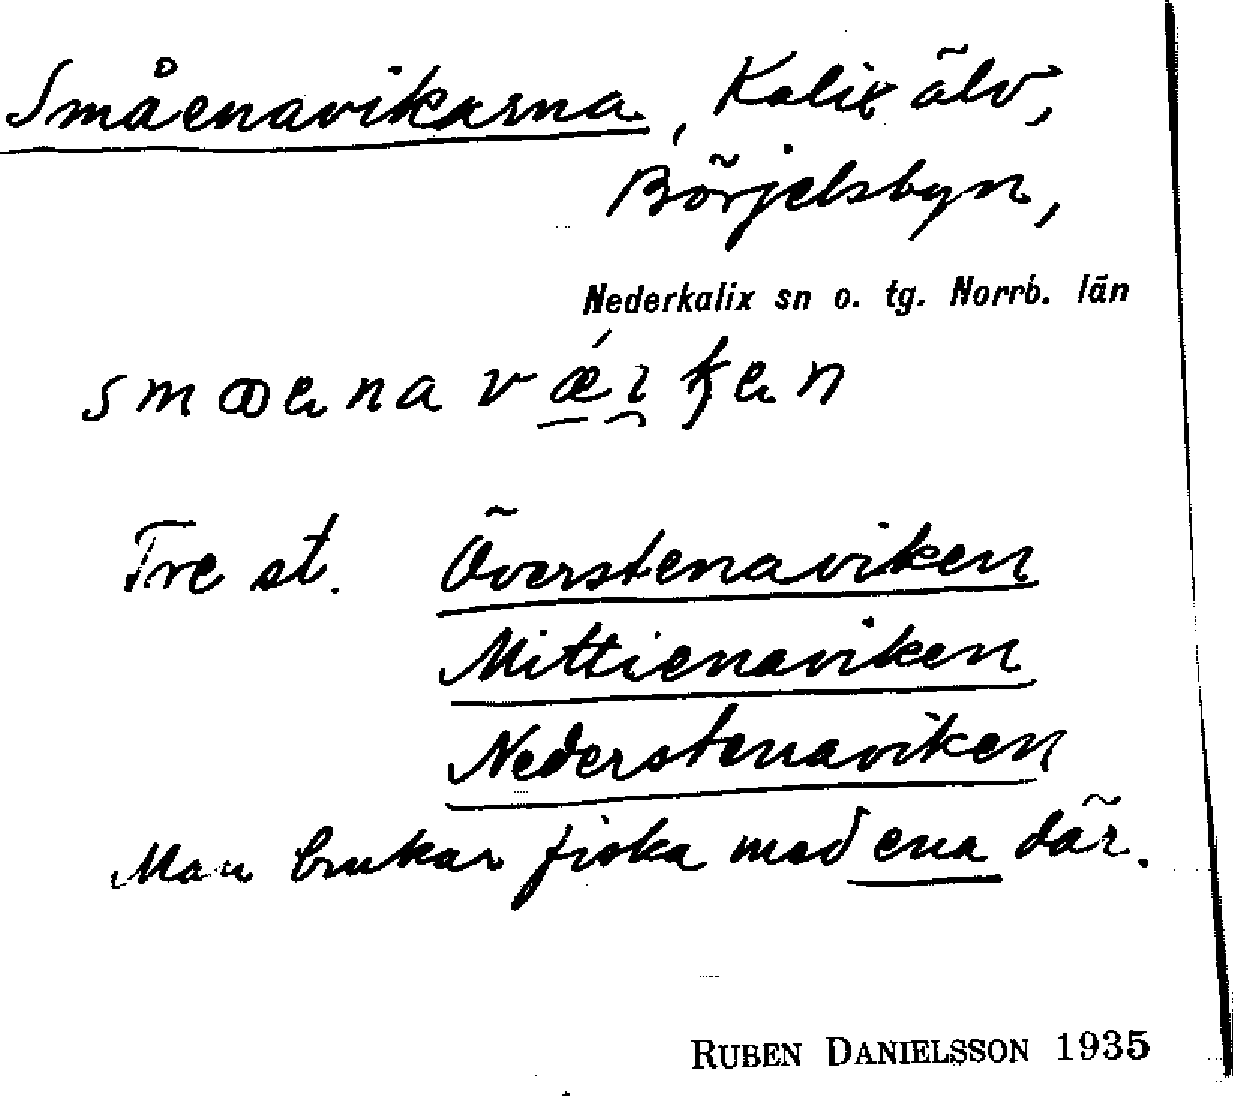 Småenavikarna, Kalix älv,
Börjelsbyn,
Nederkalix sn o. tg. Norrb. län
Tre st. Överstenaviken
Mittienaviken
Nederstenaviken
Man brukar fiska med ena där.
RUBEN DANIELSSON 1935